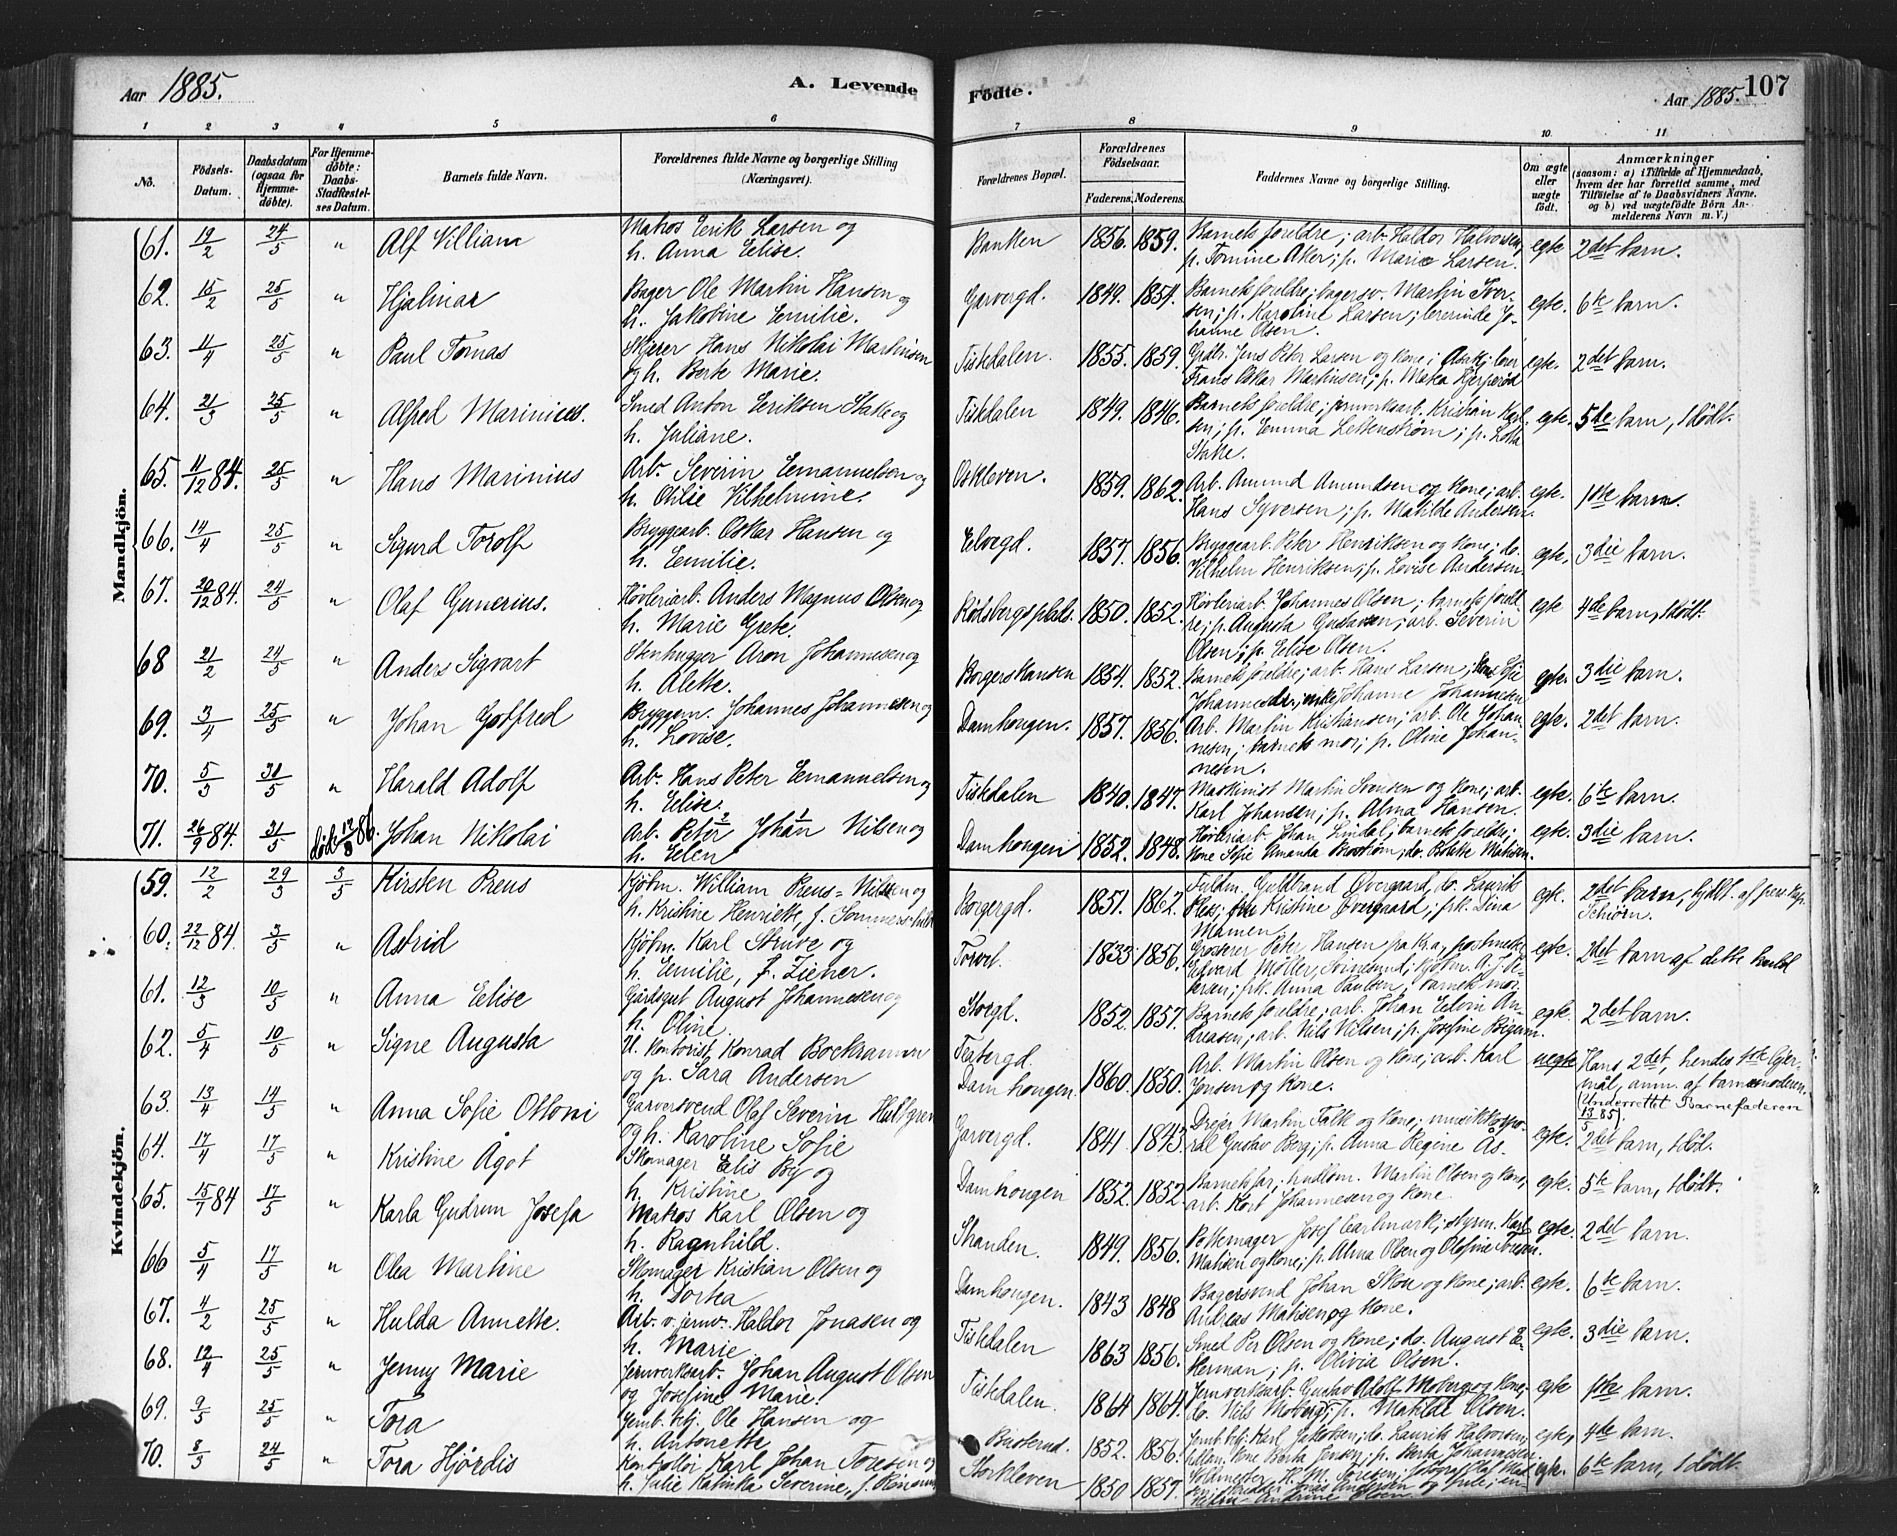 Aar 1885.
A. Levende
Födte.
Aar 1885.
107
1 2 3 4 5 6 7 8 9 10 11
No.
Födsels-Datum.
Daabsdatum (ogsaa for Hjemme-döbte).
For Hjemme-döbte: Daabs-Stadfæstel-ses Datum.
Barnets fulde Navn.
Forældrenes fulde Navne og borgerlige Stilling (Næringsvei).
Forældrenes Bopæl.
Forældrenes Födselsaar.
Faderens. Moderens.
Faddernes Navne og borgerlige Stilling.
Om ægte eller uægte födt.
Anmærkninger (saasom: a) i Tilfælde af Hjemmedaab, hvem der har forrettet samme, med Tilföielse af to Daabsvidners Navne. og b) ved uægtefödte Börn An-melderens Navn m. V.)
Mandkjön.
61. 19/2 24/5 " Alf William Matros Eerik Larsen og
h. Anna Eelise. Banken 1856. 1859. Barnets foreldre; arb. Haldor Halvorsen,
p. Tomine Aker; p. Marie Larsen. egte 2det barn.
62. 15/2 25/5 " Hjalmar Bager Ole Martin Hansen og
h. Jakobine Eemilie. Garvergd. 1849. 1854. Barnets foreldre; bagersv. Martin Iver-
sen; p. Karoline Larsen; lererinde Jo-
hanne Olsen. egte. 6te barn.
63. 11/4 25/5 " Paul Tomas Skjerer Hans Nikolai Martinsen
og h. Berte Marie. Tistedalen. 1855. 1859. Grdbr. Jens Peter Larsen og kone;
Frans Oskar Martinsen; p. egte. 2det barn.
64. 21/3 25/5 " Alfred Marinius. Smed Anton Eeriksen Stake og
h. Juliane. Tistedalen 1849. 1846. Barnets foreldre; jernverksarb. Kristian Karl-
sen; p. Emma Lettenstrøm; p. Lotta
Stake. egte. 5te barn, 1 dødt.
65. 11/12 84. 25/5 " Hans Marinius Arb. Severin Eemanuelsen og
h. Otilie Vilhelmine. Oskleven. 1859. 1862. Arb. Amund Amundsen og kone; arb.
Hans Syversen; p. Matilde Andersen. egte. 1ste barn.
66. 14/4 25/5 " Sigurd Torolf Bryggearb. Oskar Hansen og
h. Eemilie. Eelvegd. 1857. 1856. Bryggearb. Peter Henriksen og kone; do.
Vilhelm Henriksen; p. Lovise Andersen. egte, 3die barn.
67. 20/12 84. 24/5 " Olaf Gunerius. Høvleriarb. Anders Magnus Olsen og
h. Marie Grete. Rødsbergs plads. 1850. 1852. Høvleriarb. Johannes Olsen; barnets foreld-
re; p. Augusta Gustavsen; arb. Severin
Olsen; p. Eelise Olsen. egte 4de barn, 1 dødt.
68 21/2 24/5 " Anders Sigvart Stenhugger Aron Johannesen og
h. Alette. Borgerskansen 1854. 1852. Barnets foreldre; arb. Hans Larsen; kone
Johannesen; enke Johanne Johannesen egte. 3die barn.
69. 3/4 25/5 " Johan Gotfred Bryggem. Johannes Johannesen og
h. Lovise. Damhougen. 1857. 1856. Arb. Martin Kristiansen; arb. Ole Johan-
nesen; barnets mor; p. Oline Johan-
nesen. egte. 2det barn.
70. 5/3 31/5 " Harald Adolf Arb. Hans Peter Eemanuelsen og
h. Eelise. Tistedalen 1840. 1847. Maskinist Martin Svensen og kone; arb.
Karl Johansen; p. Alma Hansen. egte. 6te barn.
71. 26/9 84. 31/5 Johan Nikolai Arb. Peter Johan Nilsen og
h. Elen Damhougen 1852. 1848. Høvleriarb. Johan Lindal; barnets foreldre;
kone Sofie Amanda egte. 3die barn.
Kvindekjön.
59. 12/2 29/3 3/5 Kirsten Preus Kjøbm. William Preus-Nilsen og
h. Kristine Henriette, f. Borgergd. 1851. 1862. Fuldm. Guldbrand Overgaard, do. Laurits
Kristine Overgaard; frk. Dina
egte. 2det barn, hjdt. af pers. kap.
Schiørn.
60. 22/12 84. 3/5 " Astrid Kjøbm. Karl Struve og
h. Eemilie, f. Ziener. Torvet. 1833 1856. Grosserer Peter Hansen fra Kra, postmester
Edvard Møller, Svinesund; kjøbm.
frk. Anna Paulsen; barnets mor. egte. 2det barn af dette kuld
61. 12/3 10/5 " Anna Eelise Gårdsgut August Johannesen og
h. Oline. Storgd. 1852. 1857. Barnets foreldre; arb. Johan Edvin An-
dreasen; arb. Nils Nilsen; p. Josefine egte. 2det barn.
62. 5/4 10/5 " Signe Augusta U. kontorist Konrad Bockmann
og p. Sara Andersen Teatergd.
Damhougen. 1860. 1850. Arb. Martin Olsen og kone; arb. Karl
Jensen og kone. uegte Hans 2det, hendes 1ste leier-
mål, anm. af barnemoderen.
(Underrettet Barnefaderen
13/5 85).
63. 13/4 14/5 " Anna Sofie Ottoni Garversvend Olaf Severin Hultgren
og h. Karoline Sofie Garvergd. 1841 1843 Drejer Martin Falk og kone; musikkorpo-
ral Gustav Berg; p. Anna Regine Ås. egte. 2det barn, 1 død.
64. 17/4 17/5 " Kristine Ågot Skomager Elis By og
h. Kristine Damhougen 1852. 1852 Barnets far; Martin Olsen og kone;
arb. Kort Johannesen og kone egte. 5te barn, 1 dødt.
65. 15/7 84 17/5 " Karla Gudrun Josefa Matros Karl Olsen og
h. Ragnhild. Stranden. 1849. 1856. Pottemager Josef Carlmark; styrm. Karl
Matisen og kone; p. Alma Olsen og Olofine egte. 2det barn.
66 5/4 17/5 " Olea Martine Skomager Kristian Olsen og
h. Dortea Damhougen. 1843 1848 Bagersvend Johan Skou og kone; arb.
Andreas Matisen og kone. egte. 6te barn.
67. 4/2 25/5 " Hulda Annette. Arb. v. jernv. Haldor Jonasen og
h. Marie. Tistedalen 1863 1856. Smed Per Olsen og kone; do. August
Herman; p. Olivia Olsen. egte. 3die barn.
68. 12/4 25/5 " Jenny Marie Jernverksarb. Johan August Olsen
og Josefine Marie. Tistedalen. 1864 1864. Jernverksarb. Gustav Adolf Moberg og kone;
do. Nils Moberg; p. Matilde Olsen. egte 1ste barn.
69. 9/5 25/5 " Tora Jernb. btj. Ole Hansen og
h. Antonette Busterud. 1852. 1856. Jernb. btj. Karl Jakobsen; do. Laurits Halvorsen;
kone Berta Jensen; p. Berta Johannesen. egte, 4de barn.
70. 8/3 24/5 " Tora Hjørdis Kontrollør Karl Johan Toresen og
h. Julie Katinka Severine, f. Storkleven 1850 1857. H. M. Toresen; fotograf Olaf
Andrine Olsen egte. 6te barn, 1 dødt.